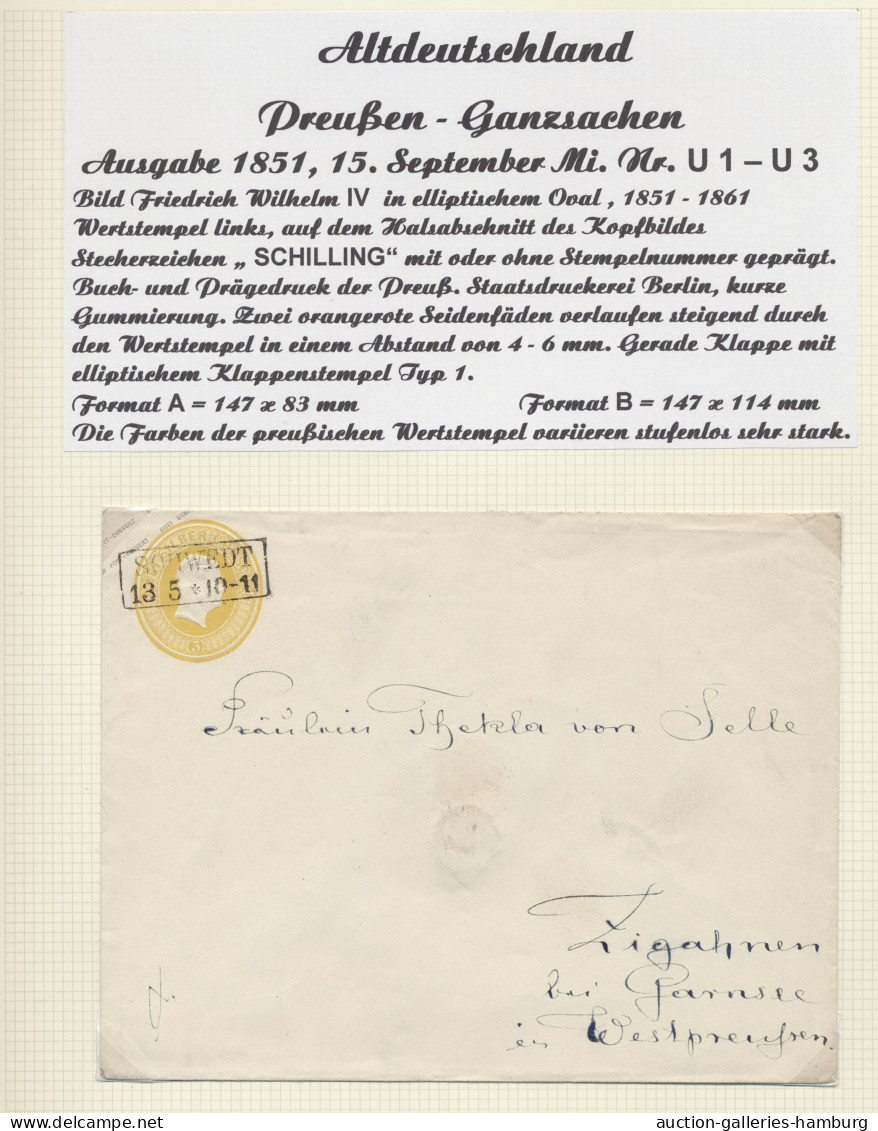 Altdeutschland
Preußen - Ganzsachen
Ausgabe 1851, 15. September Mi. Nr. U 1 – U 3
Bild Friedrich Wilhelm IV in elliptischem Oval , 1851 - 1861
Wertstempel links, auf dem Halsabschnitt des Kopfbildes
Stecherzeichen „ SCHILLING“ mit oder ohne Stempelnummer geprägt.
Buch- und Prägedruck der Preuß. Staatsdruckerei Berlin, kurze
Gummierung. Zwei orangerote Seidenfäden verlaufen steigend durch
den Wertstempel in einem Abstand von 4 - 6 mm. Gerade Klappe mit
elliptischem Klappenstempel Typ 1.
Format A = 147 x 83 mm Format B = 147 x 114 mm
Die Farben der preußischen Wertstempel variieren stufenlos sehr stark.
SCHWEDT
13 5 * 10-11
3
Fräulein Thekla von Selle
Zigahnen
bei Garnsee
in Westpreußen.
auction-galleries-hamburg